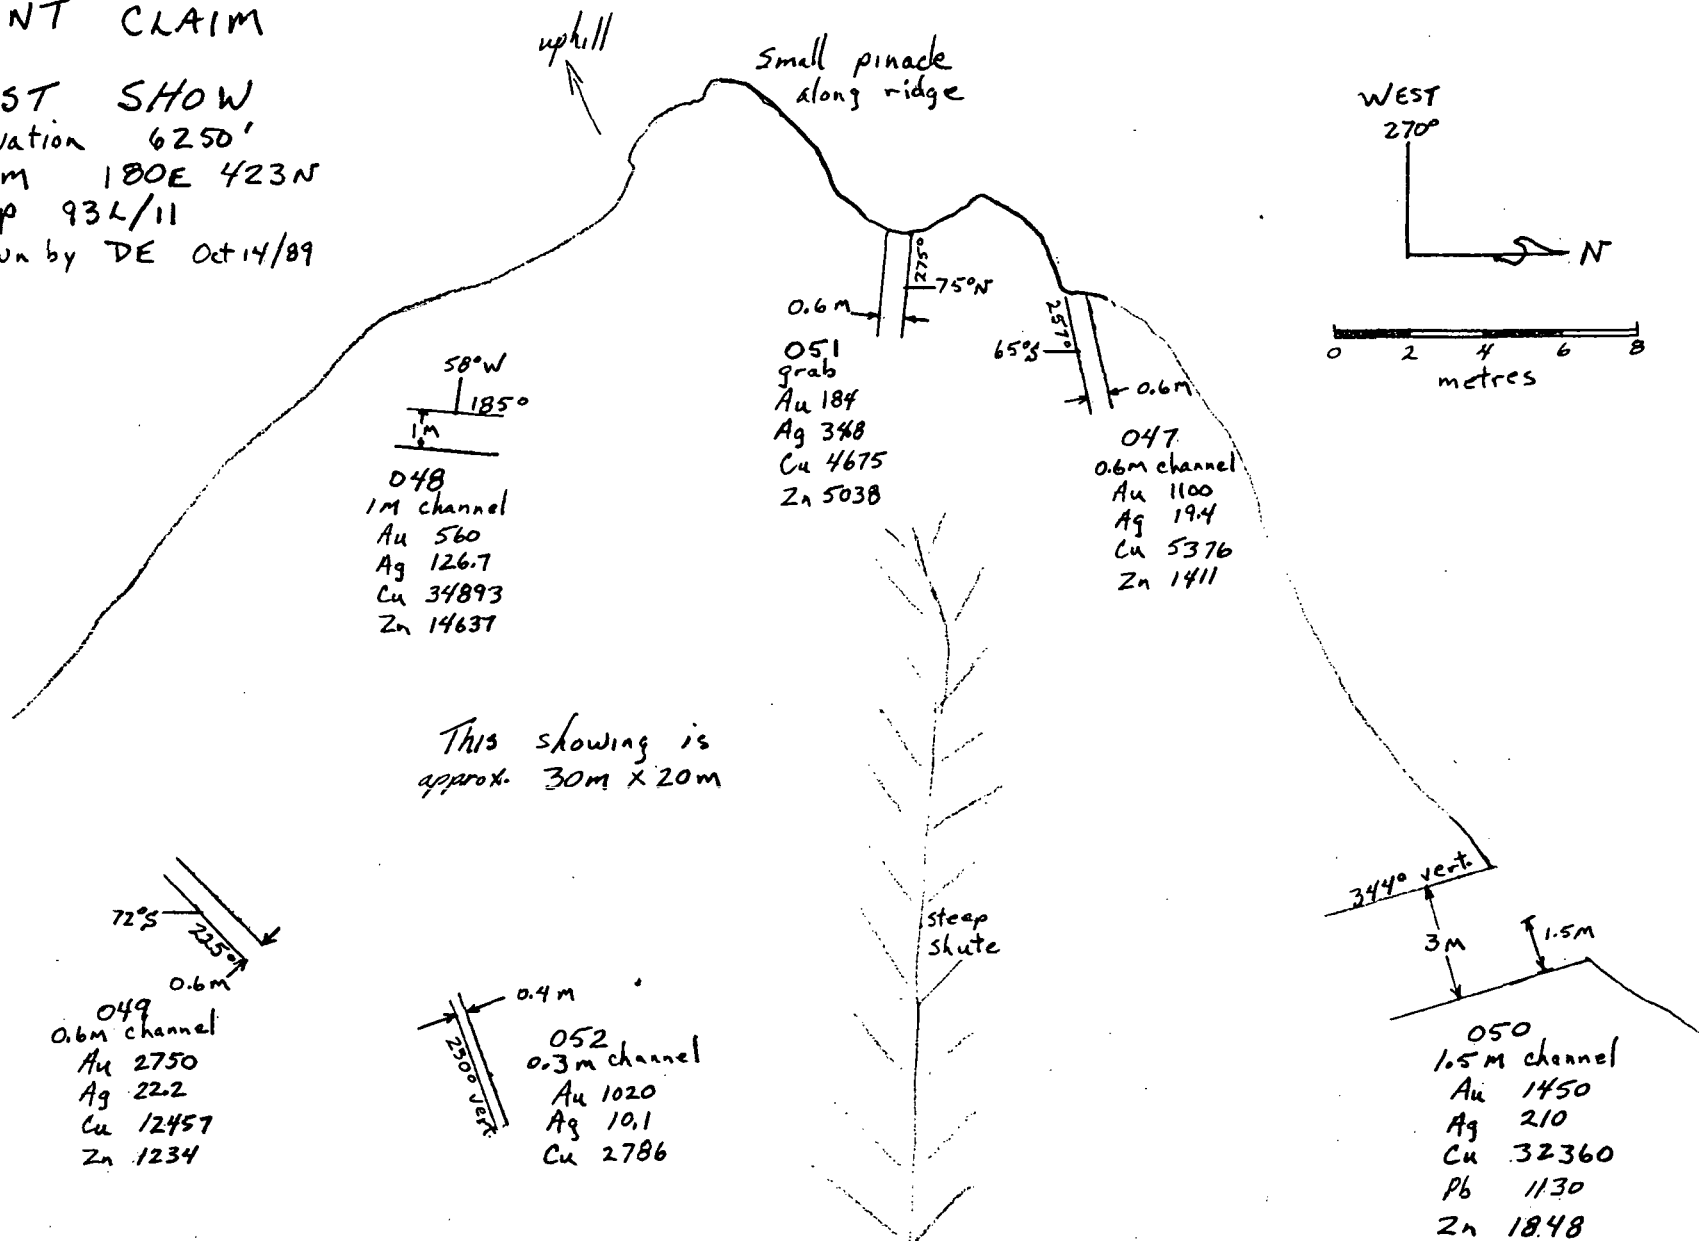 NT CLAIM
ST SHOW
vation 6250'
m 180E 423N
p 93L/11
un by DE Oct 14/89
uphill
small pinacle
along ridge
WEST
270°
N
0 2 4 6 8
metres
58°W
185°
1m
048
1M channel
Au 560
Ag 126.7
Cu 34893
Zn 14637
275°
75°N
0.6M
051
grab
Au 184
Ag 348
Cu 4675
Zn 5038
257°
65°S
0.6M
047
0.6m channel
Au 1100
Ag 19.4
Cu 5376
Zn 1411
This showing is
approx. 30m X 20m
72°S
225°
0.6m
049
0.6m channel
Au 2750
Ag 22.2
Cu 12457
Zn 1234
0.4 m
230° vert.
052
0.3m channel
Au 1020
Ag 10.1
Cu 2786
steep
shute
344° vert.
3M
1.5M
050
1.5M channel
Au 1450
Ag 210
Cu 32360
Pb 1130
Zn 1848